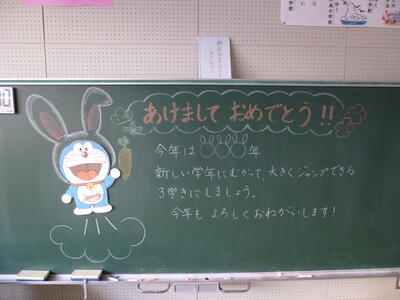 あけまして おめでとう!!
今年は 年
新しい学年にむかって、大きくジャンプできる
3学きにしましょう。
今年も よろしくおねがいします!